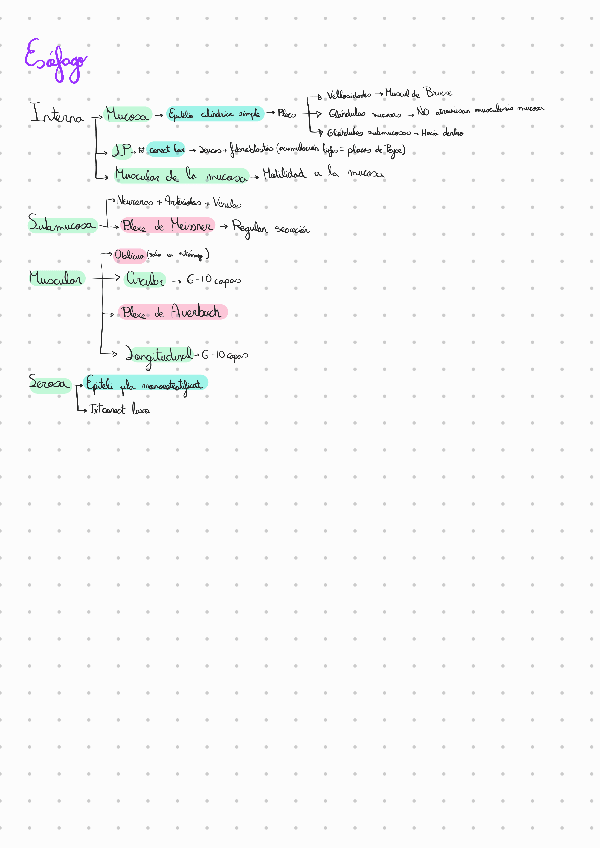 Esófago
Interna → Mucosa → Epitelio cilíndrico simple → Plecs → Vellosidades → Muscul de Brucke
→ Glándulas mucosas → NO atraviesan muscularis mucosa
→ Glándulas submucosas → Hacia dentro
→ L.P. → tt conect lax → Leucos + fibroblastos (acumulación = placas de Peyer)
→ Muscular de la mucosa → Motilidad a la mucosa
→ Neuronas + Arteriolas + Vénulas
Submucosa → Plexo de Meissner → Regulan secreción
→ Oblicuo (sólo en estómago)
Muscular → Circular → 6-10 capas
→ Plexo de Auerbach
→ Longitudinal → 6-10 capas
Serosa → Epiteli pla monoestratificat
→ Txt conect laxo